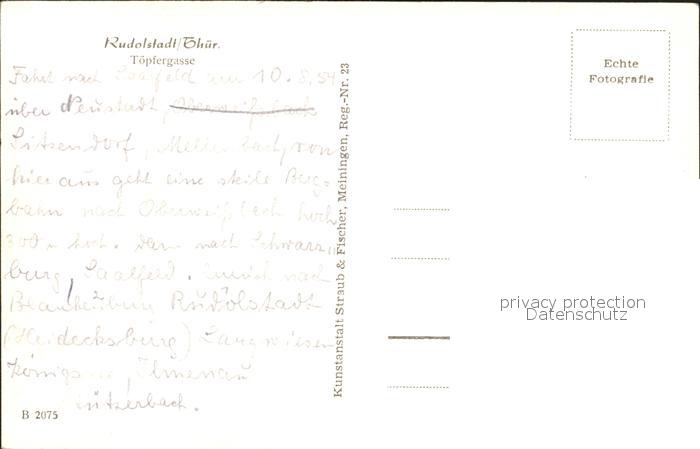 Rudolstadt/Thür.
Töpfergasse
Fahrt nach Saalfeld am 10.8.54
über Neustadt, Oberweißbach
Sitzendorf, Mellenbach, von
hier aus geht eine steile Berg-
bahn nach Oberweißbach hoch
300 m hoch. Dann nach Schwarz-
burg, Saalfeld. Zurück nach
Blankenburg Rudolstadt
(Heidecksburg) Langwiesen
Ilmenau
B 2075
Kunstanstalt Straub & Fischer, Meiningen, Reg.-Nr. 23
Echte
Fotografie
privacy protection
Datenschutz